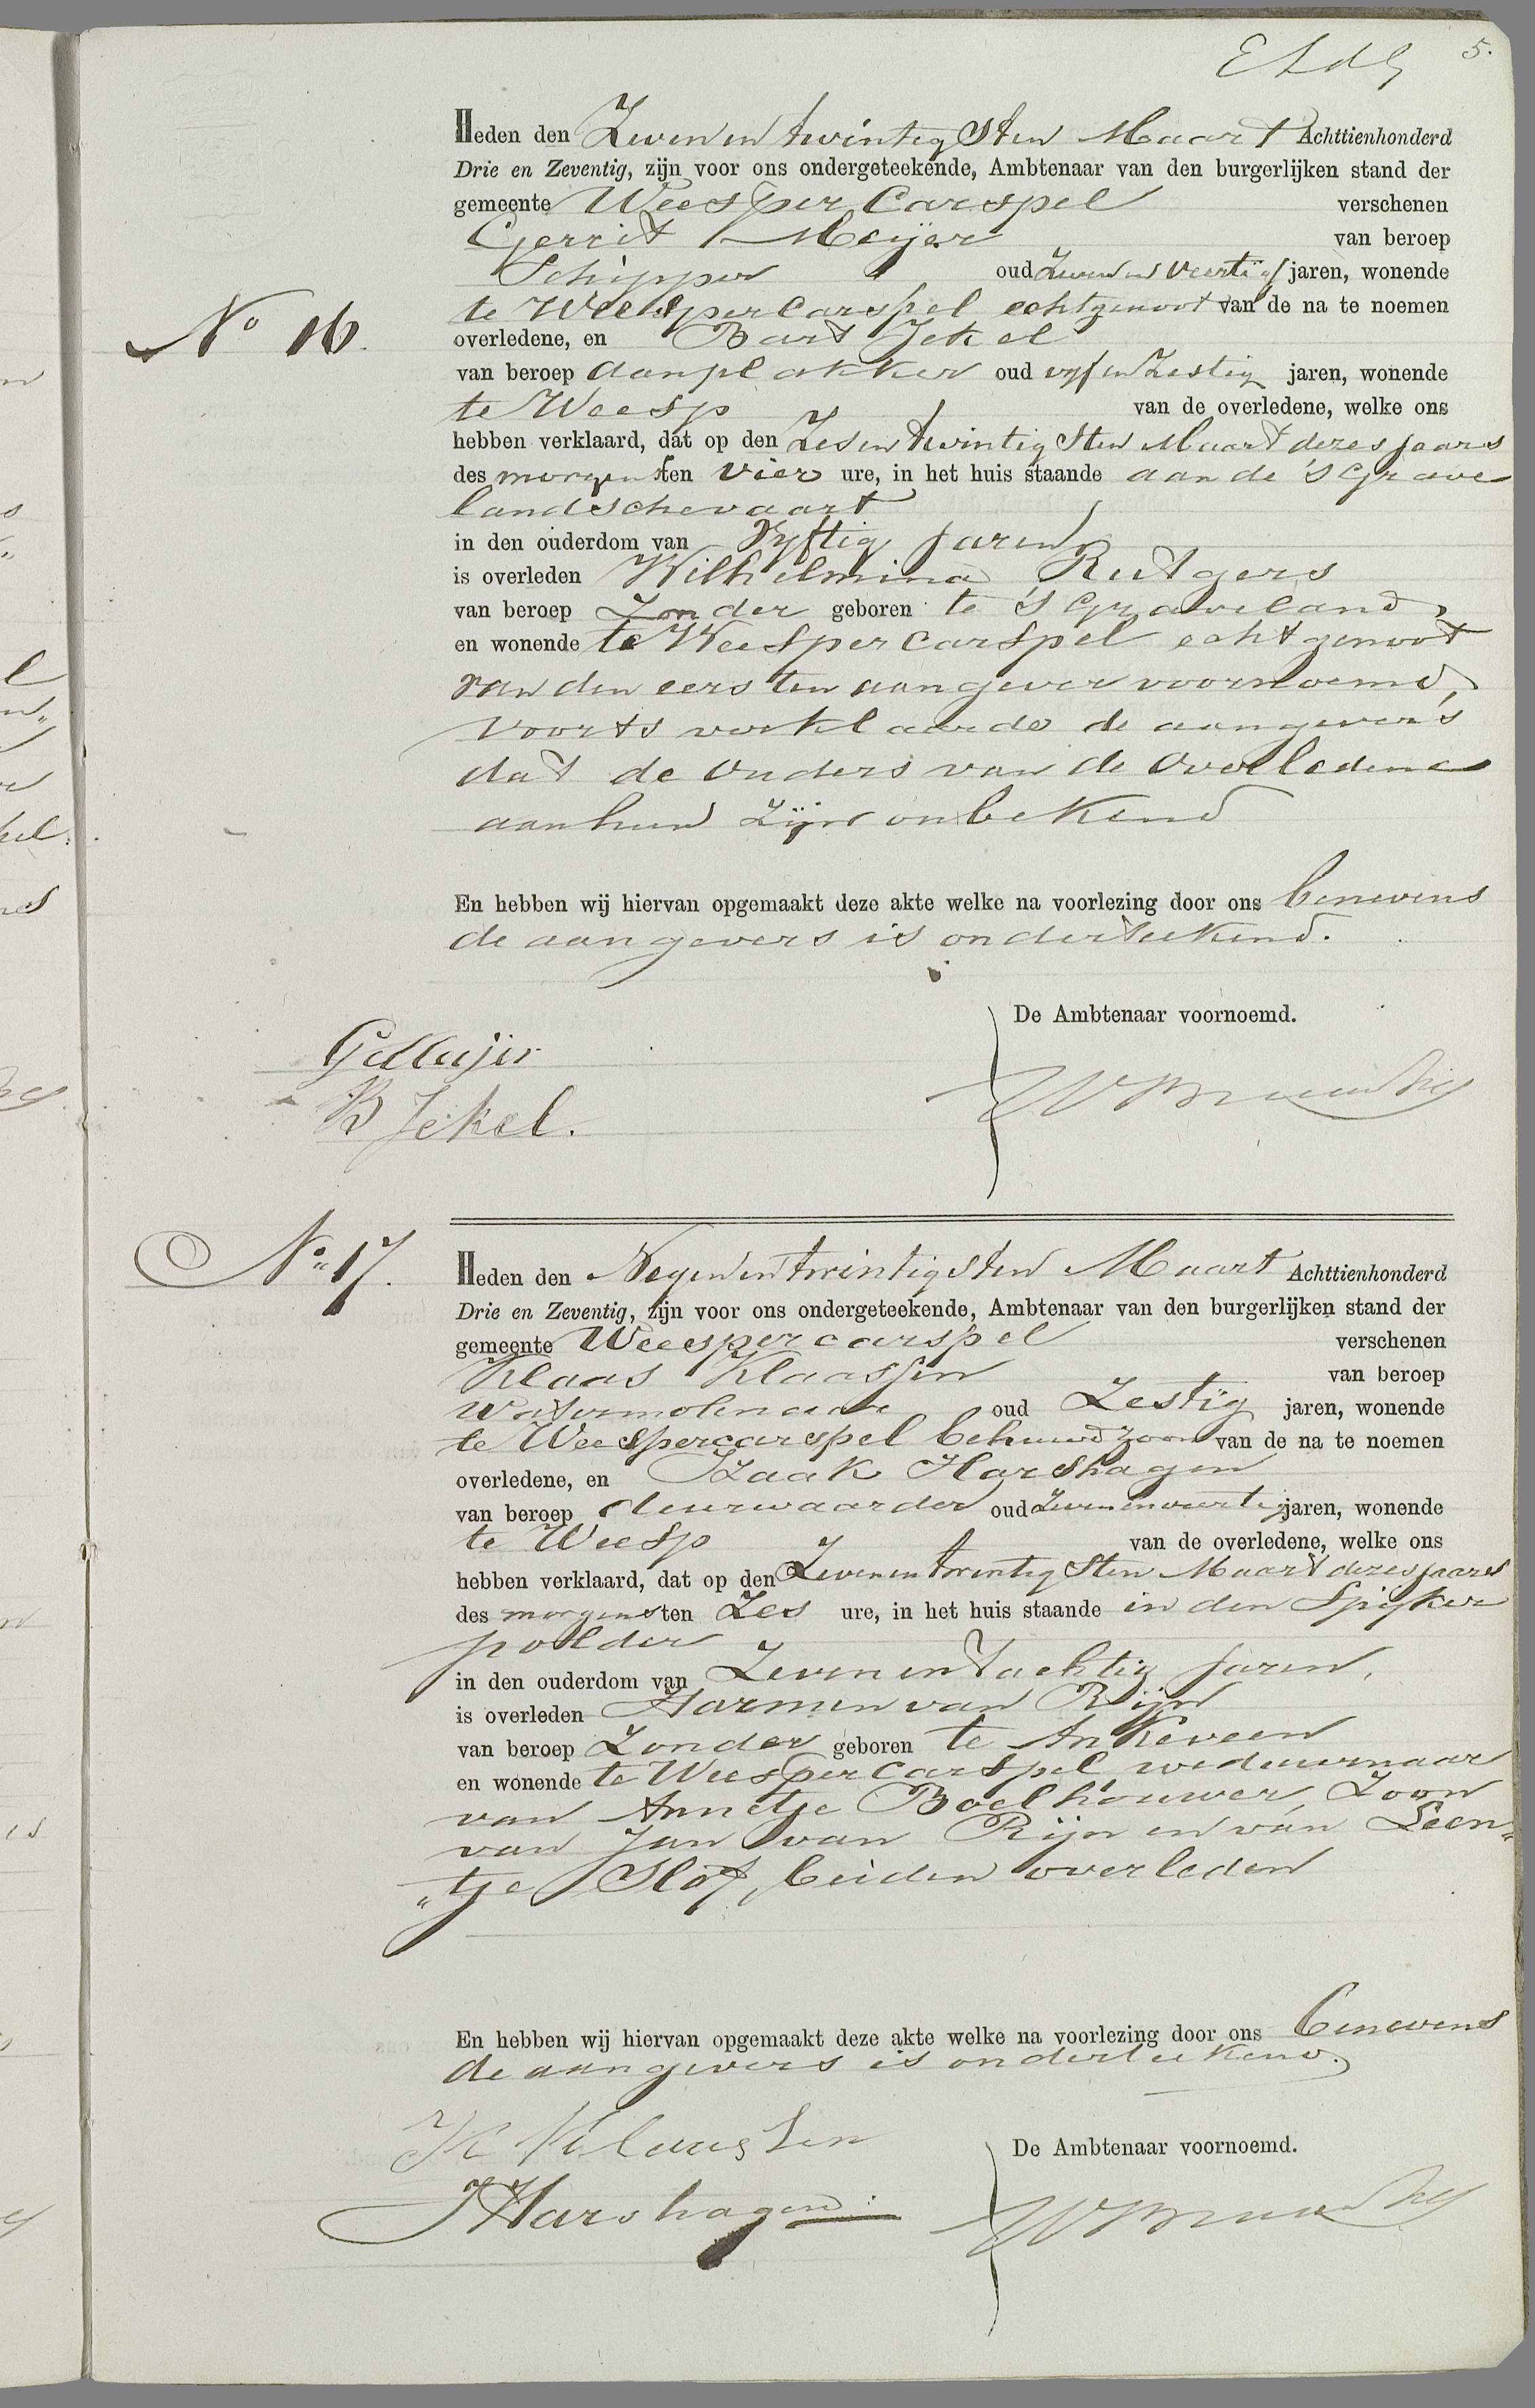 5.
Heden den Zeven en twintigsten Maart Achttienhonderd
Drie en Zeventig, zijn voor ons ondergeteekende, Ambtenaar van den burgerlijken stand der
gemeente Weespercarspel verschenen
Gerrit Meijer van beroep
Schipper oud Zeven en veertig jaren, wonende
No 16. te Weespercarspel echtgenoot van de na te noemen
overledene, en Bart Jekel
van beroep aanplakker oud vyf en Zestig jaren, wonende
te Weesp van de overledene, welke ons
hebben verklaard, dat op den Zes en twintigsten Maart dezes jaars
des morgens ten vier ure, in het huis staande aan de 's Grave
landschevaart
in den ouderdom van Vyftig jaren,
is overleden Wilhelmina Rutgers
van beroep Zonder geboren te 's Graveland,
en wonende te Weespercarspel echtgenoot
van den eersten aangever voornoemd,
voorts verklaarde de aangevers
dat de ouders van de overledene
aan hun zijn onbekend
En hebben wij hiervan opgemaakt deze akte welke na voorlezing door ons benevens
de aangevers is onderteekend.
De Ambtenaar voornoemd.
G Meijer
B Jekel.
No 17. Heden den Negen en twintigsten Maart Achttienhonderd
Drie en Zeventig, zijn voor ons ondergeteekende, Ambtenaar van den burgerlijken stand der
gemeente Weespercarspel verschenen
Klaas Klaassen van beroep
Watermolenaar oud Zestig jaren, wonende
te Weespercarspel behuwdzoon van de na te noemen
overledene, en Izaak Harshagen
van beroep deurwaarder oud Zeven en veertig jaren, wonende
te Weesp van de overledene, welke ons
hebben verklaard, dat op den Zeven en twintigsten Maart dezes jaars
des morgens ten Zes ure, in het huis staande in den Spijker
polder
in den ouderdom van Zeven en tachtig jaren,
is overleden Harmen van Rijn
van beroep Zonder geboren te Ankeveen
en wonende te Weespercarspel weduwnaar
van Annetje Boelhouwer, Zoon
van Jan van Rijn en van Leen„
„tje Slot, beiden overleden
En hebben wij hiervan opgemaakt deze akte welke na voorlezing door ons benevens
de aangevers is onderteekend.
K Klaassen
De Ambtenaar voornoemd.
J Harshagen